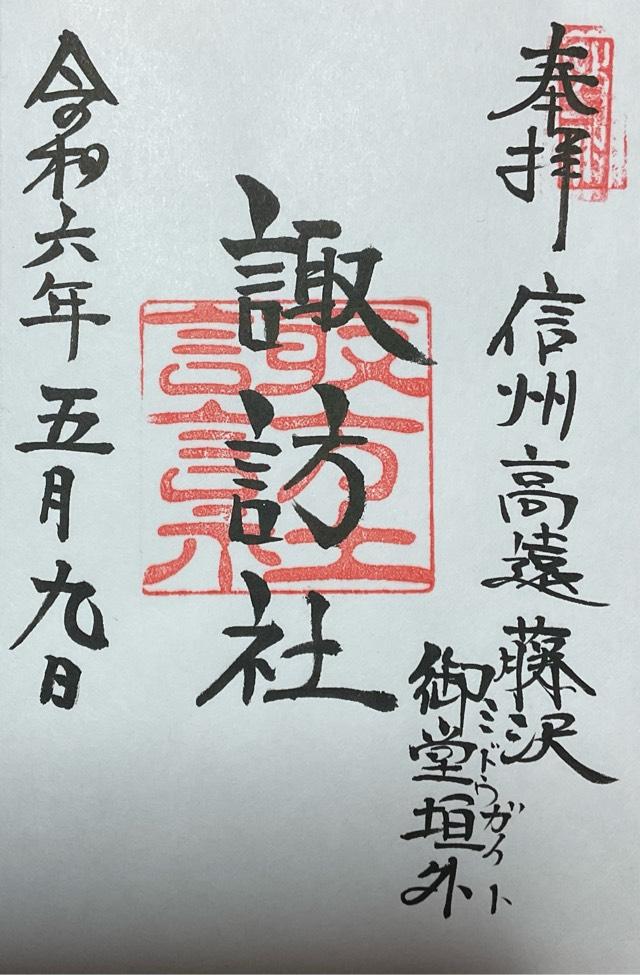 奉拝
信州高遠藤沢
御堂垣外
ミドウガイト
諏訪社
諏訪社
令和六年五月九日